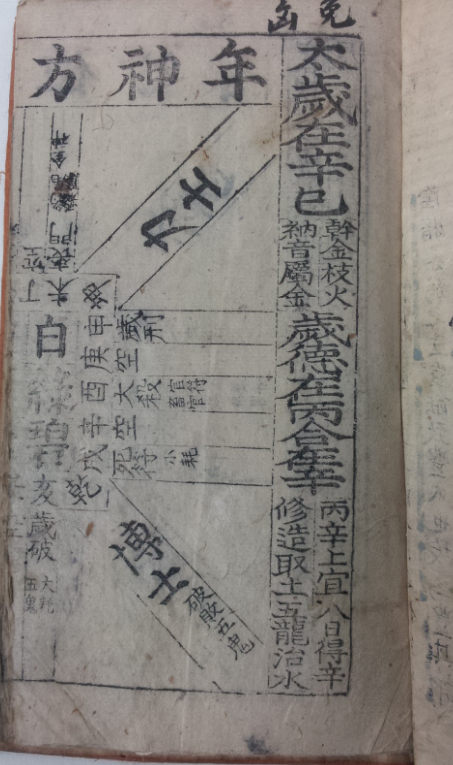 太歲在辛巳
幹金枝火
納音屬金
歲德在丙合在辛
丙辛上宜八日得辛
修造取土五龍治水
年神方
力士
博士
破敗五鬼
歲刑
申
庚空
酉大殺
官符
畜官
辛空
戌死符
小耗
乾
白
碧
亥歲破
大耗
五鬼
金神
丁空
未喪門